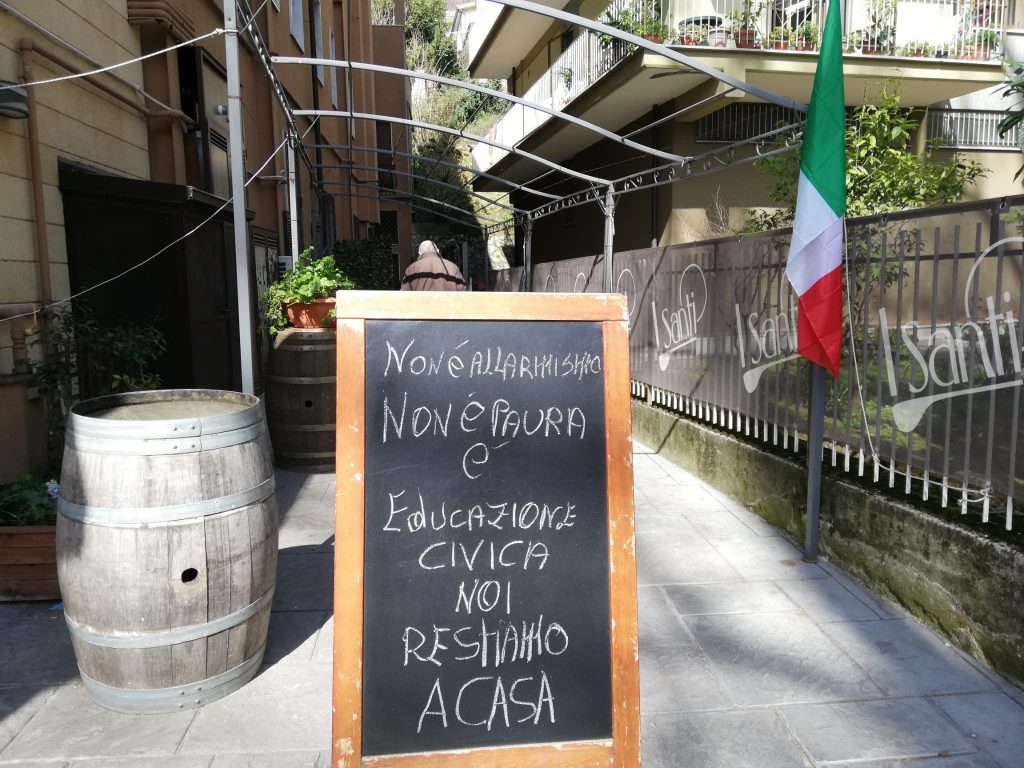 Non è ALLARMISMO
NON è PAURA
è
EdUCAZIONE
CIVICA
NOI
RESTIAMO
A CASA
I Santi
I Santi
I Santi